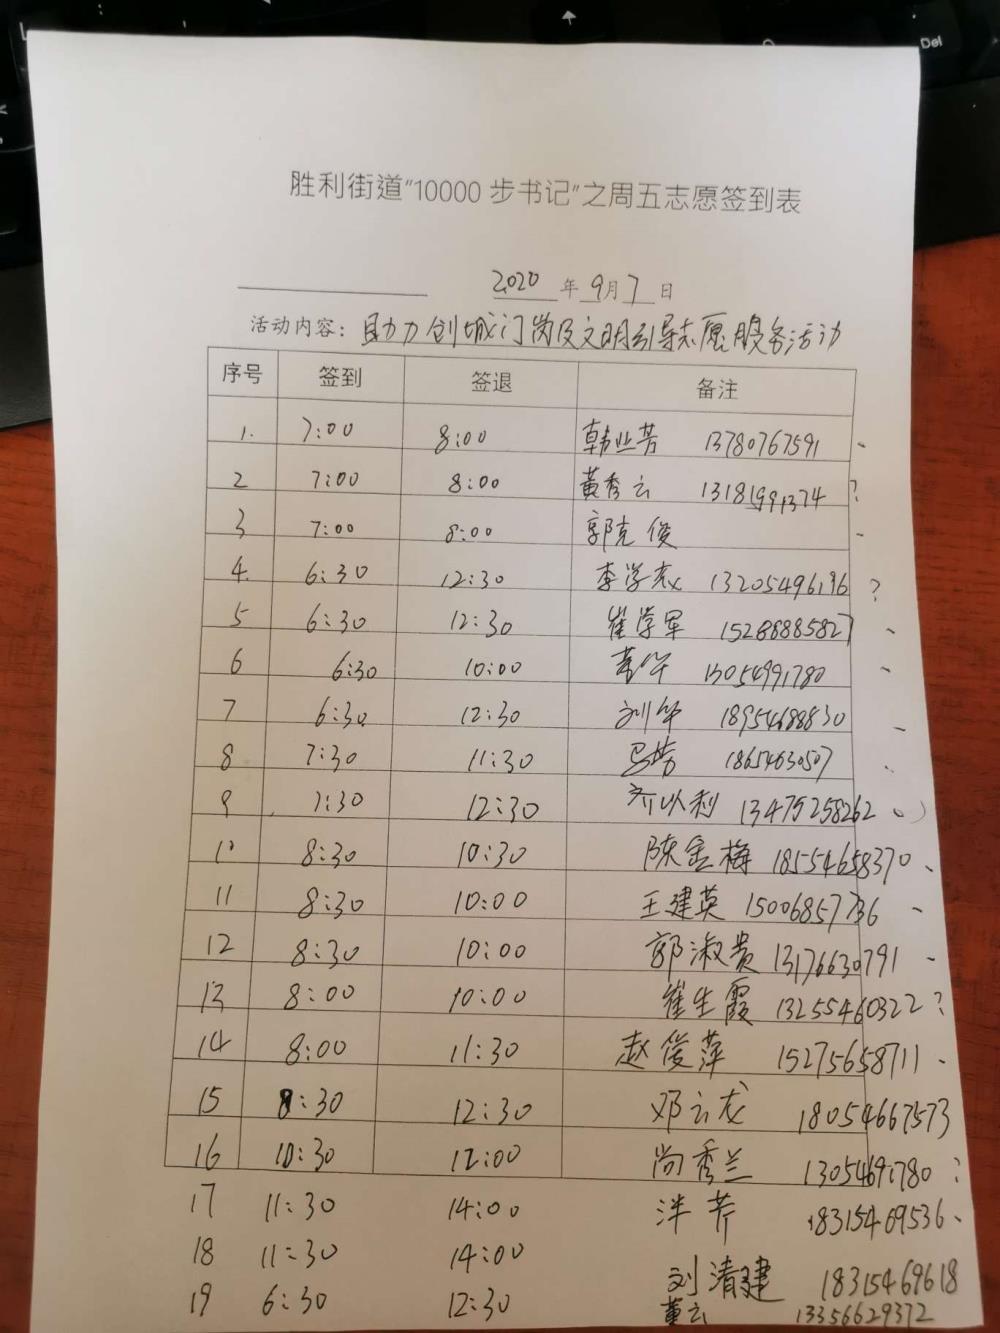 胜利街道"10000 步书记"之周五志愿签到表
2020 年 9月 7 日
活动内容: 助力创城门岗及文明引导志愿服务活动
序号 签到 签退 备注
1. 7:00 8:00 韩业芳 13780767591 -
2 7:00 8:00 黄秀云 13181991374 ?
3 7:00 8:00 郭克俊 -
4 6:30 12:30 李学 13205496196 ?
5 6:30 12:30 崔学军 15288885827 -
6 6:30 10:00 13054991780 -
7 6:30 12:30 刘华 18954688830 -
8 7:30 11:30 马芳 18654630507
9 7:30 12:30 齐以利 13475258262
10 8:30 10:30 陈金梅 18554658370
11 8:30 10:00 王建英 15006857736 -
12 8:30 10:00 郭淑贵 13176630791 -
13 8:00 10:00 崔生霞 13255460322 ?
14 8:00 11:30 赵俊萍 15275658711 -
15 8:30 12:30 邓云龙 18054667573
16 10:30 12:00 尚秀兰 ?
17 11:30 14:00 18315469536
18 11:30 14:00 刘清建 18315469618
19 6:30 12:30 董云 13356629372